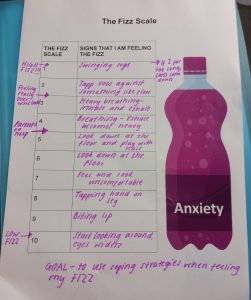 The Fizz Scale
THE FIZZ SCALE
SIGNS THAT I AM FEELING THE FIZZ
HIGH FIZZ
1
Swinging legs
If I for too long, calm down
Feeling really over
2
Tapp toes against something like floor
3
Heavy breathing- inhale and exhale
Parents to help
4
Breathing - exhale becomes heavy
5
Look down at the floor and play with nails
6
Look down at the floor
7
Feel and look uncomfortable
8
Tapping hand on leg
9
Biting lip
LOW FIZZ
10
Start looking around eyes
Anxiety
GOAL - to use coping strategies when feeling my FIZZ